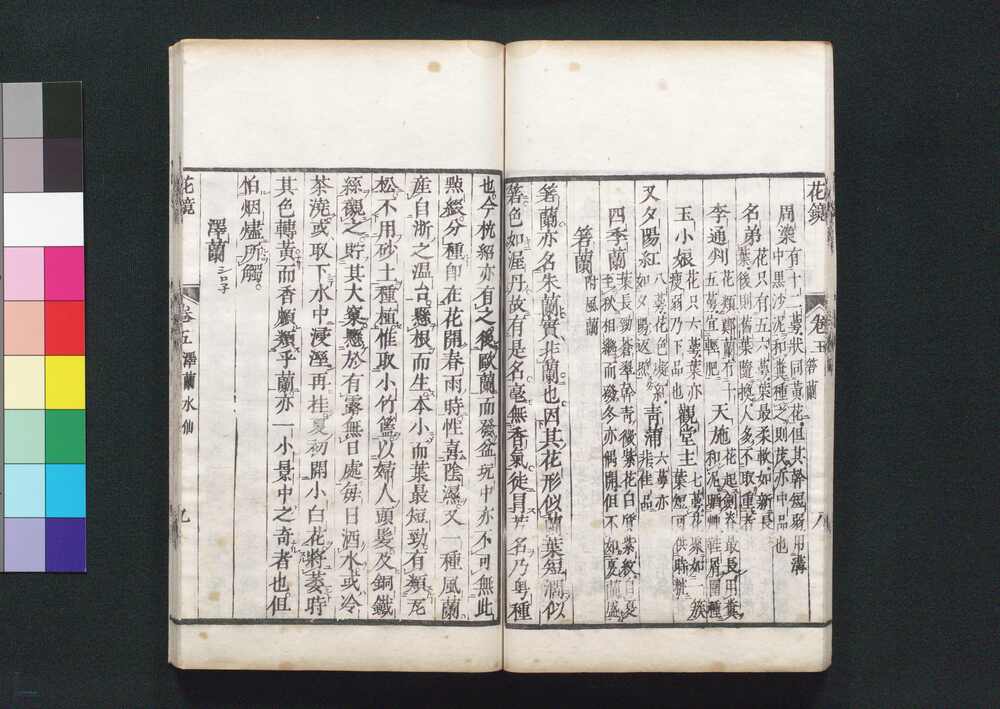 花鏡 卷五 箬蘭 八
周染 有十二萼狀同黃花但其幹短弱用溝中黑沙泥和糞種之則茂亦中品也
名弟 花只有五六萼葉最柔軟如新長葉後則舊葉隨換人多不取重者
李通判 花類鄭蘭有十五萼宜輕肥 天施 花起劍脊最長用糞和泥晒乾鞋屑圍種
玉小娘 花只六萼葉亦瘦弱乃下品也 觀堂主 七萼花聚如一簇葉短可供時粧
又夕陽紅 八萼花色凝紅如夕陽返照 青蒲 六萼亦非佳品
四季蘭 葉長勁蒼翠幹青微紫花白質紫紋自夏至秋相繼而發冬亦偶開但不如夏
箬蘭 附風蘭
箬蘭亦名朱蘭實非蘭也因其花形似蘭葉短濶似
箬色如渥丹故有是名毫無香氣徒具其名乃粤種
也今杭紹亦有之後歐蘭而發盆玩中亦不可無此
㸃綴分種即在花開春雨時性喜陰濕又一種風蘭
產自浙之温台懸根而生本小而葉最短勁有類瓦
松不用砂土種植惟取小竹籃以婦人頭髮及銅鐵
絲襯之貯其大窠懸於有露無日處每日洒水或冷
茶澆或取下水中浸溼再挂夏初開小白花將萎時
其色轉黃而香頗類乎蘭亦一小景中之奇者也但
怕烟燼所觸
澤蘭
花鏡 卷五 澤蘭 水仙 九